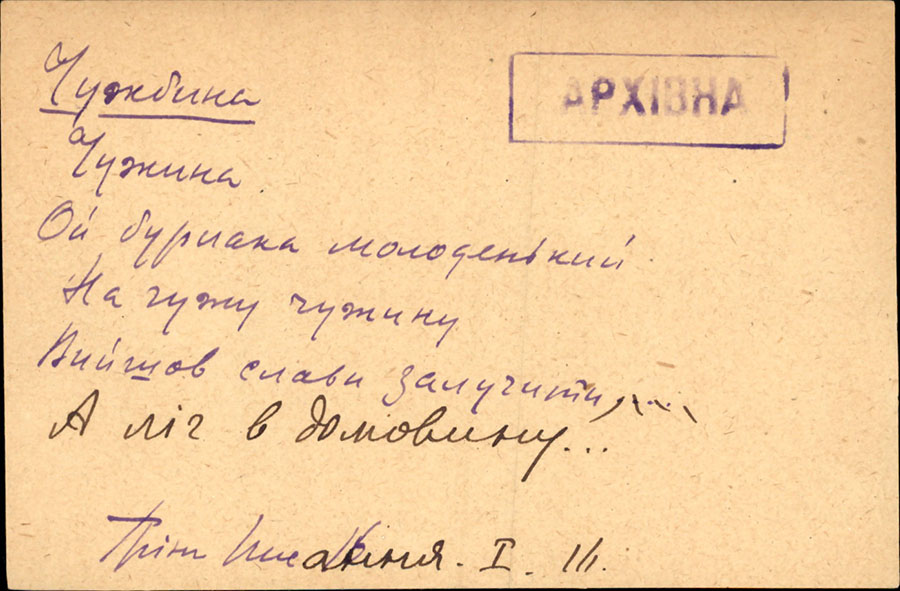 Чужбина
АРХІВНА
Чужина
Ой бурлака молоденький
На чужу чужину
Вийшов слави залучити,...
А ліг в домовину...
I. 16.